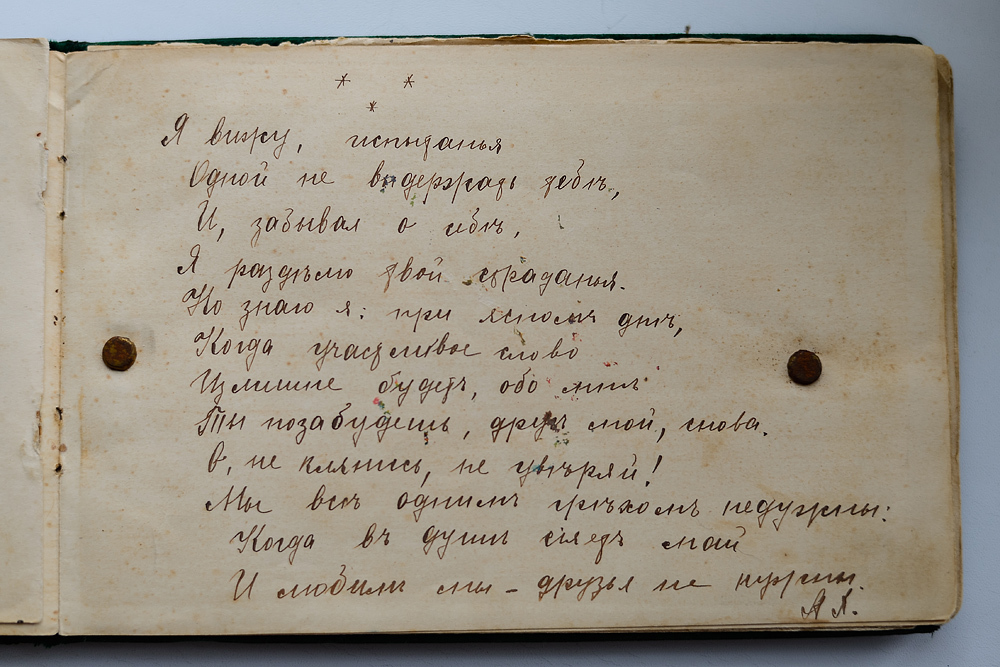 * *
*
Я вижу, испытанья
Одной не выдержать тебѣ,
И, забывая о себѣ,
Я раздѣлю твои страданья.
Но знаю я: при ясномъ днѣ,
Когда участливое слово
Излишне будетъ, обо мнѣ
Ты позабудешь, другъ мой, снова.
О, не клянись, не увѣряй!
Мы всѣ однимъ грѣхомъ недужны:
Когда въ душѣ сіяетъ май
И любимъ мы – друзья не нужны.
А. Х.